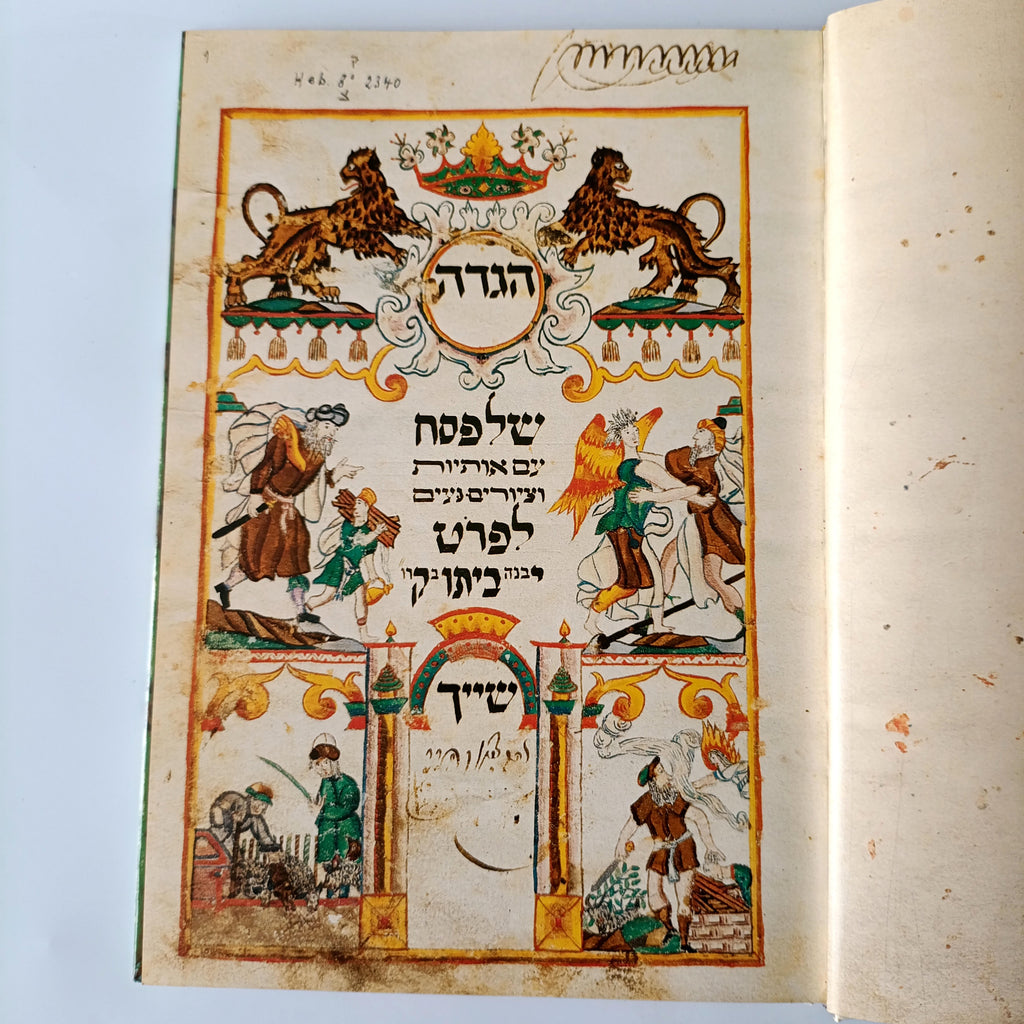 Heb. 8° 2340
הגדה
של פסח
עם אותיות
וציורים נעים
לפרט
יבנה ביתו בק
שייך